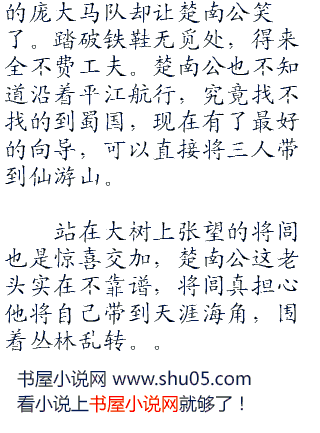 的庞大马队却让楚南公笑
了。踏破铁鞋无觅处，得来
全不费工夫。楚南公也不知
道沿着平江航行，究竟找不
找的到蜀国，现在有了最好
的向导，可以直接将三人带
到仙游山。
站在大树上张望的将闾
也是惊喜交加，楚南公这老
头实在不靠谱，将闾真担心
他将自己带到天涯海角，围
着丛林乱转。。
书屋小说网 www.shu05.com
看小说上书屋小说网就够了！